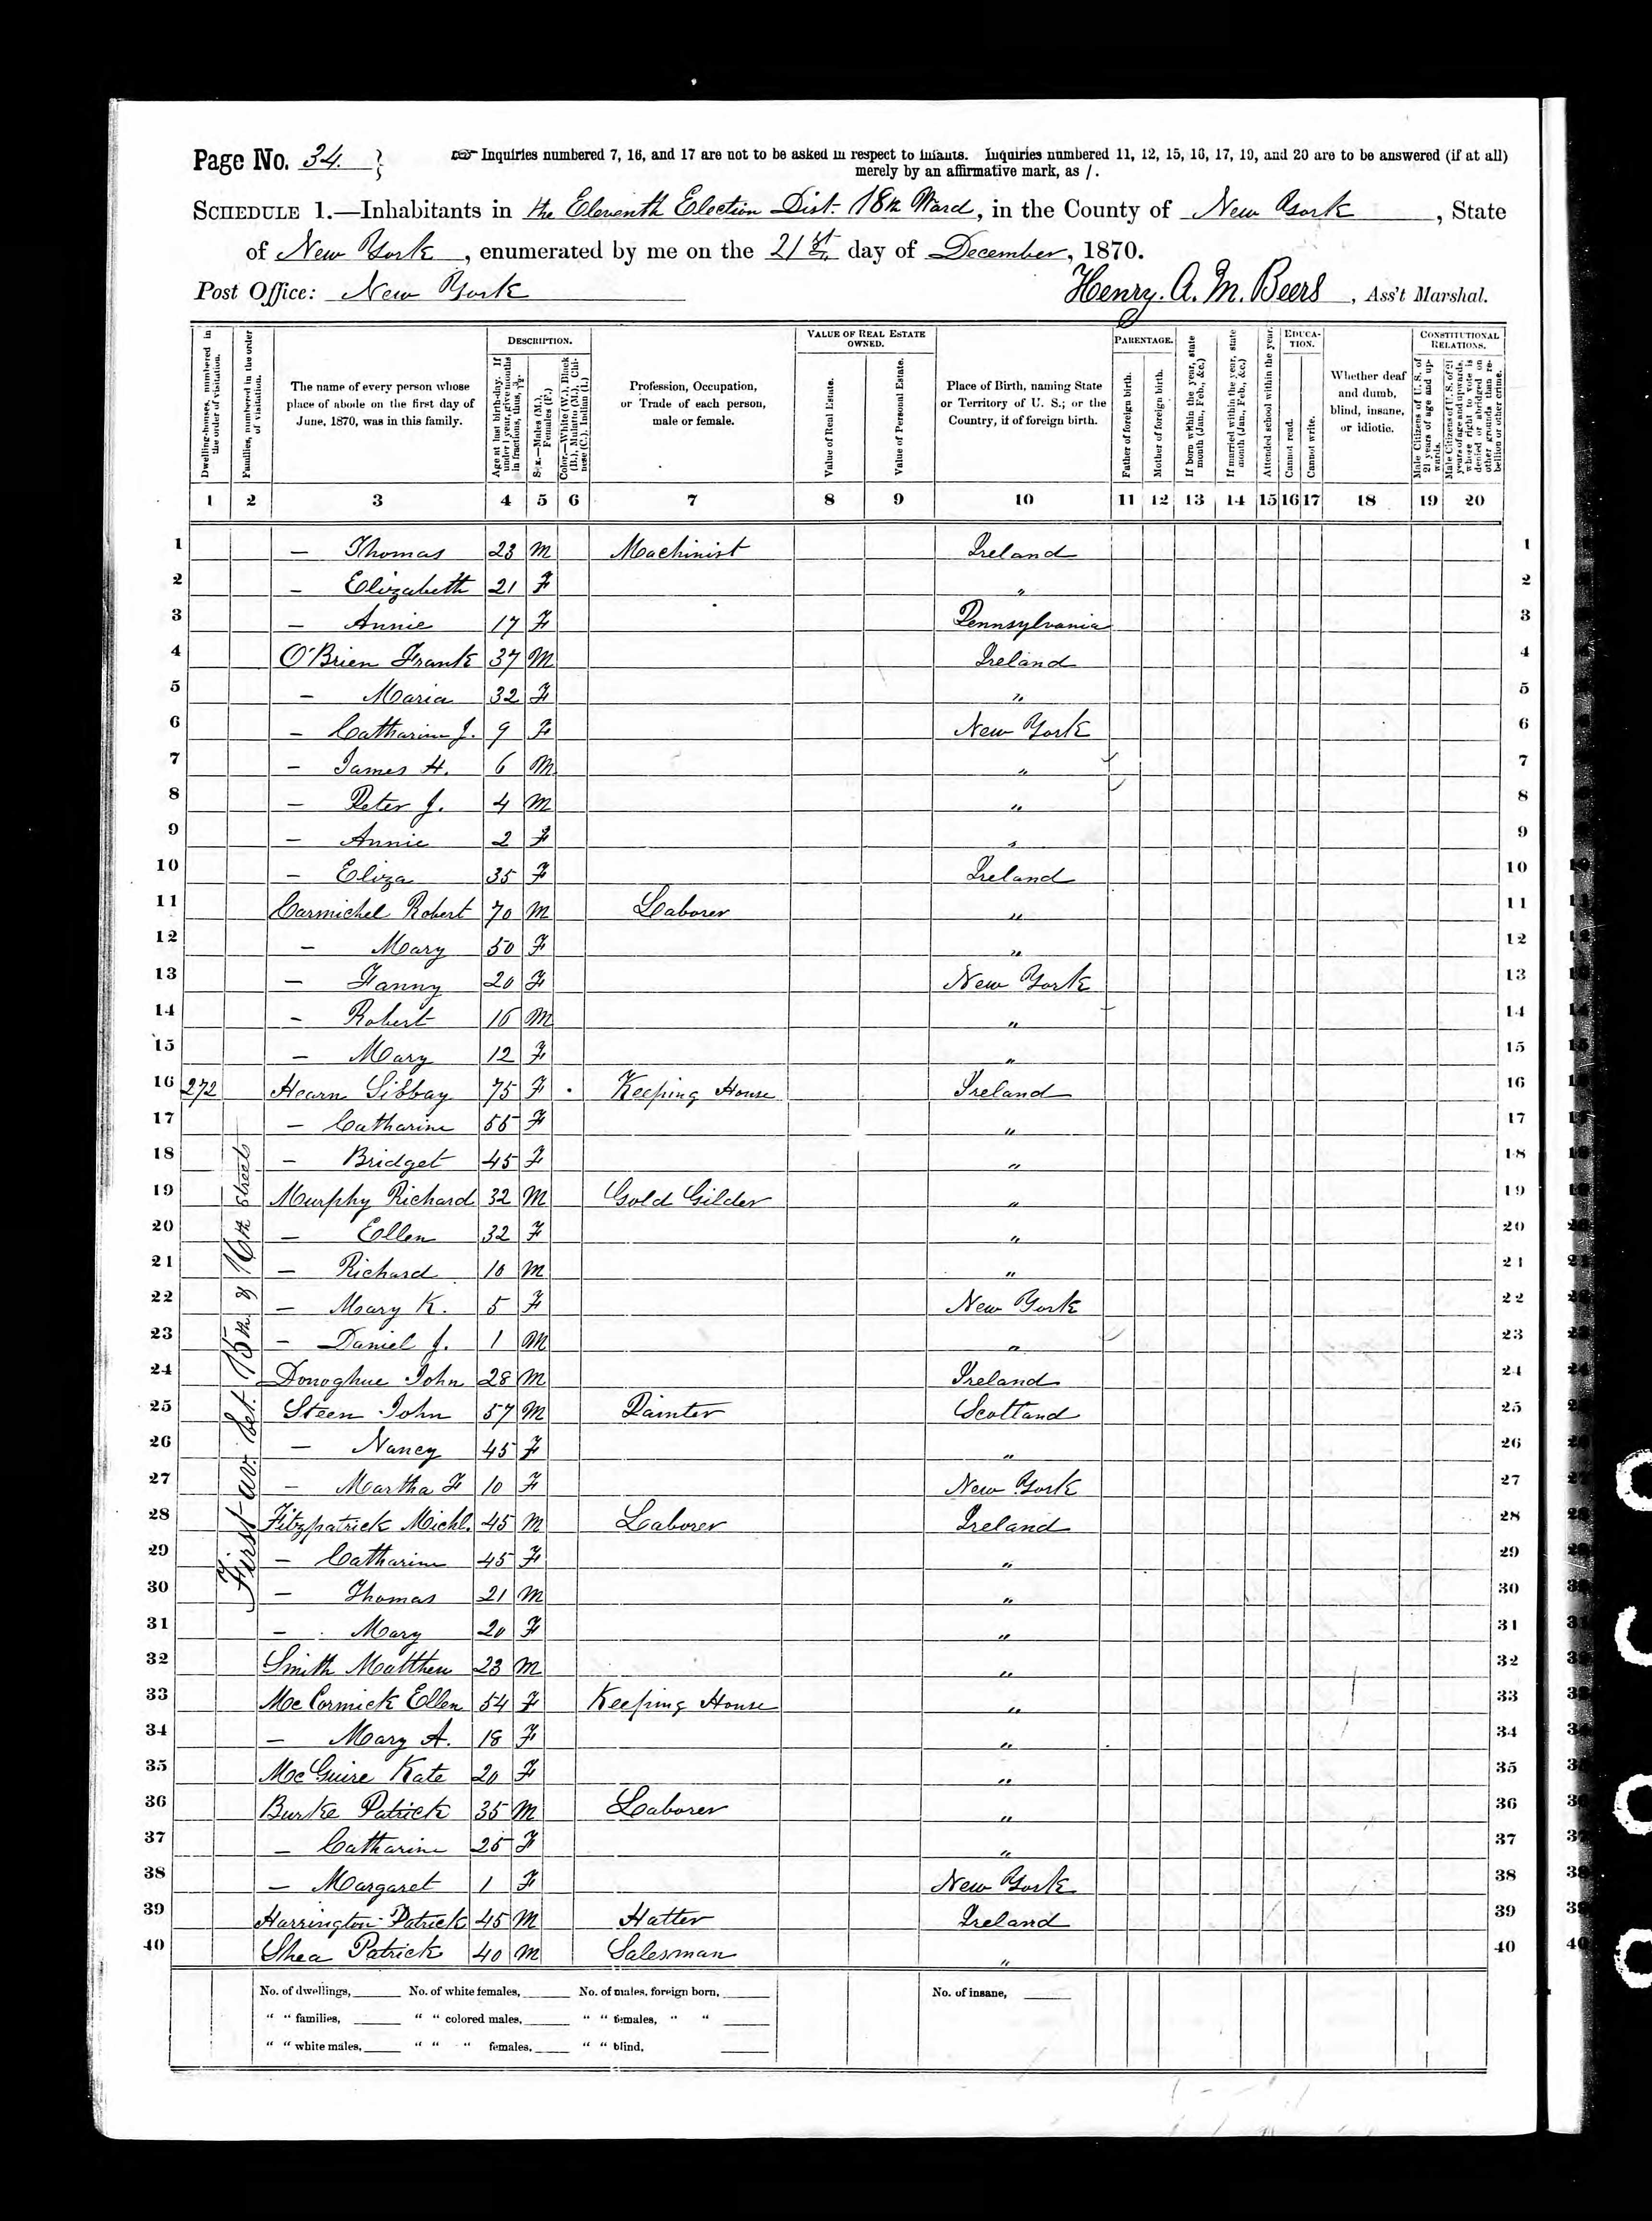 Page No. 34.
Inquiries numbered 7, 16, and 17 are not to be asked in respect to infants. Inquiries numbered 11, 12, 15, 16, 17, 19, and 20 are to be answered (if at all)
merely by an affirmative mark, as /.
SCHEDULE 1.—Inhabitants in the Eleventh Election Dist. 18th Ward, in the County of New York, State
of New York, enumerated by me on the 21st day of December, 1870.
Post Office: New York Henry. A. M. Beers, Ass't Marshal.
Dwelling-houses, numbered in the order of visitation.
Families, numbered in the order of visitation.
The name of every person whose place of abode on the first day of June, 1870, was in this family.
DESCRIPTION.
Age at last birth-day. If under 1 year, give months in fractions, thus, 3/12.
Sex.—Males (M.), Females (F.)
Color.—White (W.), Black (B.), Mulatto (M.), Chinese (C.), Indian (I.)
Profession, Occupation, or Trade of each person, male or female.
VALUE OF REAL ESTATE OWNED.
Value of Real Estate.
Value of Personal Estate.
Place of Birth, naming State or Territory of U. S.; or the Country, if of foreign birth.
PARENTAGE.
Father of foreign birth.
Mother of foreign birth.
If born within the year, state month (Jan., Feb., &c.)
If married within the year, state month (Jan., Feb., &c.)
Attended school within the year.
EDUCATION.
Cannot read.
Cannot write.
Whether deaf and dumb, blind, insane, or idiotic.
CONSTITUTIONAL RELATIONS.
Male Citizens of U. S. of 21 years of age and upwards.
Male Citizens of U. S. of 21 years of age and upwards, where right to vote is denied or abridged on other grounds than rebellion or other crime.
1 2 3 4 5 6 7 8 9 10 11 12 13 14 15 16 17 18 19 20
1 — Thomas 23 M Machinist Ireland 1
2 — Elizabeth 21 F " 2
3 — Annie 17 F Pennsylvania 3
4 O'Brien Frank 37 M Ireland 4
5 — Maria 32 F " 5
6 — Catharine J. 9 F New York 6
7 — James H. 6 M " 7
8 — Peter J. 4 M " 8
9 — Annie 2 F " 9
10 — Eliza 35 F Ireland 10
11 Carmichel Robert 70 M Laborer " 11
12 — Mary 50 F " 12
13 — Fanny 20 F New York 13
14 — Robert 16 M " 14
15 — Mary 12 F " 15
16 272 Hearn Sibbay 75 F Keeping House Ireland 16
17 — Catharine 55 F " 17
18 — Bridget 45 F " 18
19 Murphy Richard 32 M Gold Gilder " 19
20 — Ellen 32 F " 20
21 — Richard 10 M " 21
22 — Mary K. 5 F New York 22
23 — Daniel J. 1 M " 23
24 Donoghue John 28 M Ireland 24
25 Steen John 57 M Painter Scotland 25
26 — Nancy 45 F " 26
27 — Martha F 10 F New York 27
28 Fitzpatrick Michl. 45 M Laborer Ireland 28
29 — Catharine 45 F " 29
30 — Thomas 21 M " 30
31 — Mary 20 F " 31
32 Smith Matthew 23 M " 32
33 McCormick Ellen 54 F Keeping House " 33
34 — Mary A. 18 F " 34
35 McGuire Kate 20 F " 35
36 Burke Patrick 35 M Laborer " 36
37 — Catharine 25 F " 37
38 — Margaret 1 F New York 38
39 Harrington Patrick 45 M Hatter Ireland 39
40 Shea Patrick 40 M Salesman " 40
First av. bet. 15th & 16th streets
No. of dwellings, No. of white females, No. of males, foreign born, No. of insane,
" " families, " " colored males, " " females, " "
" " white males, " " " females, " " blind,